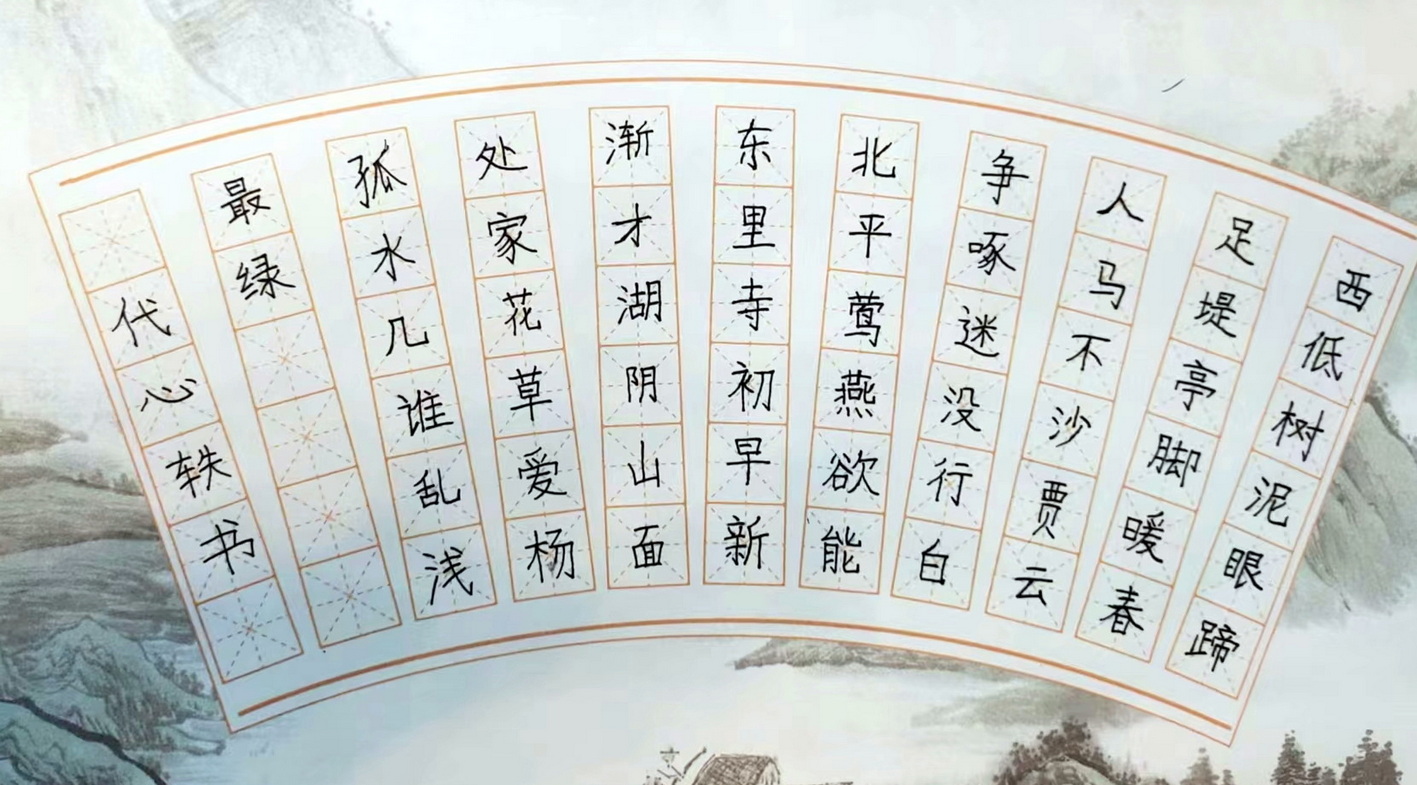 西低树泥眼蹄
足堤亭脚暖春
人马不沙贾云
争啄迷没行白
北平莺燕欲能
东里寺初早新
渐才湖阴山面
处家花草爱杨
孤水几谁乱浅
最绿
代心轶书